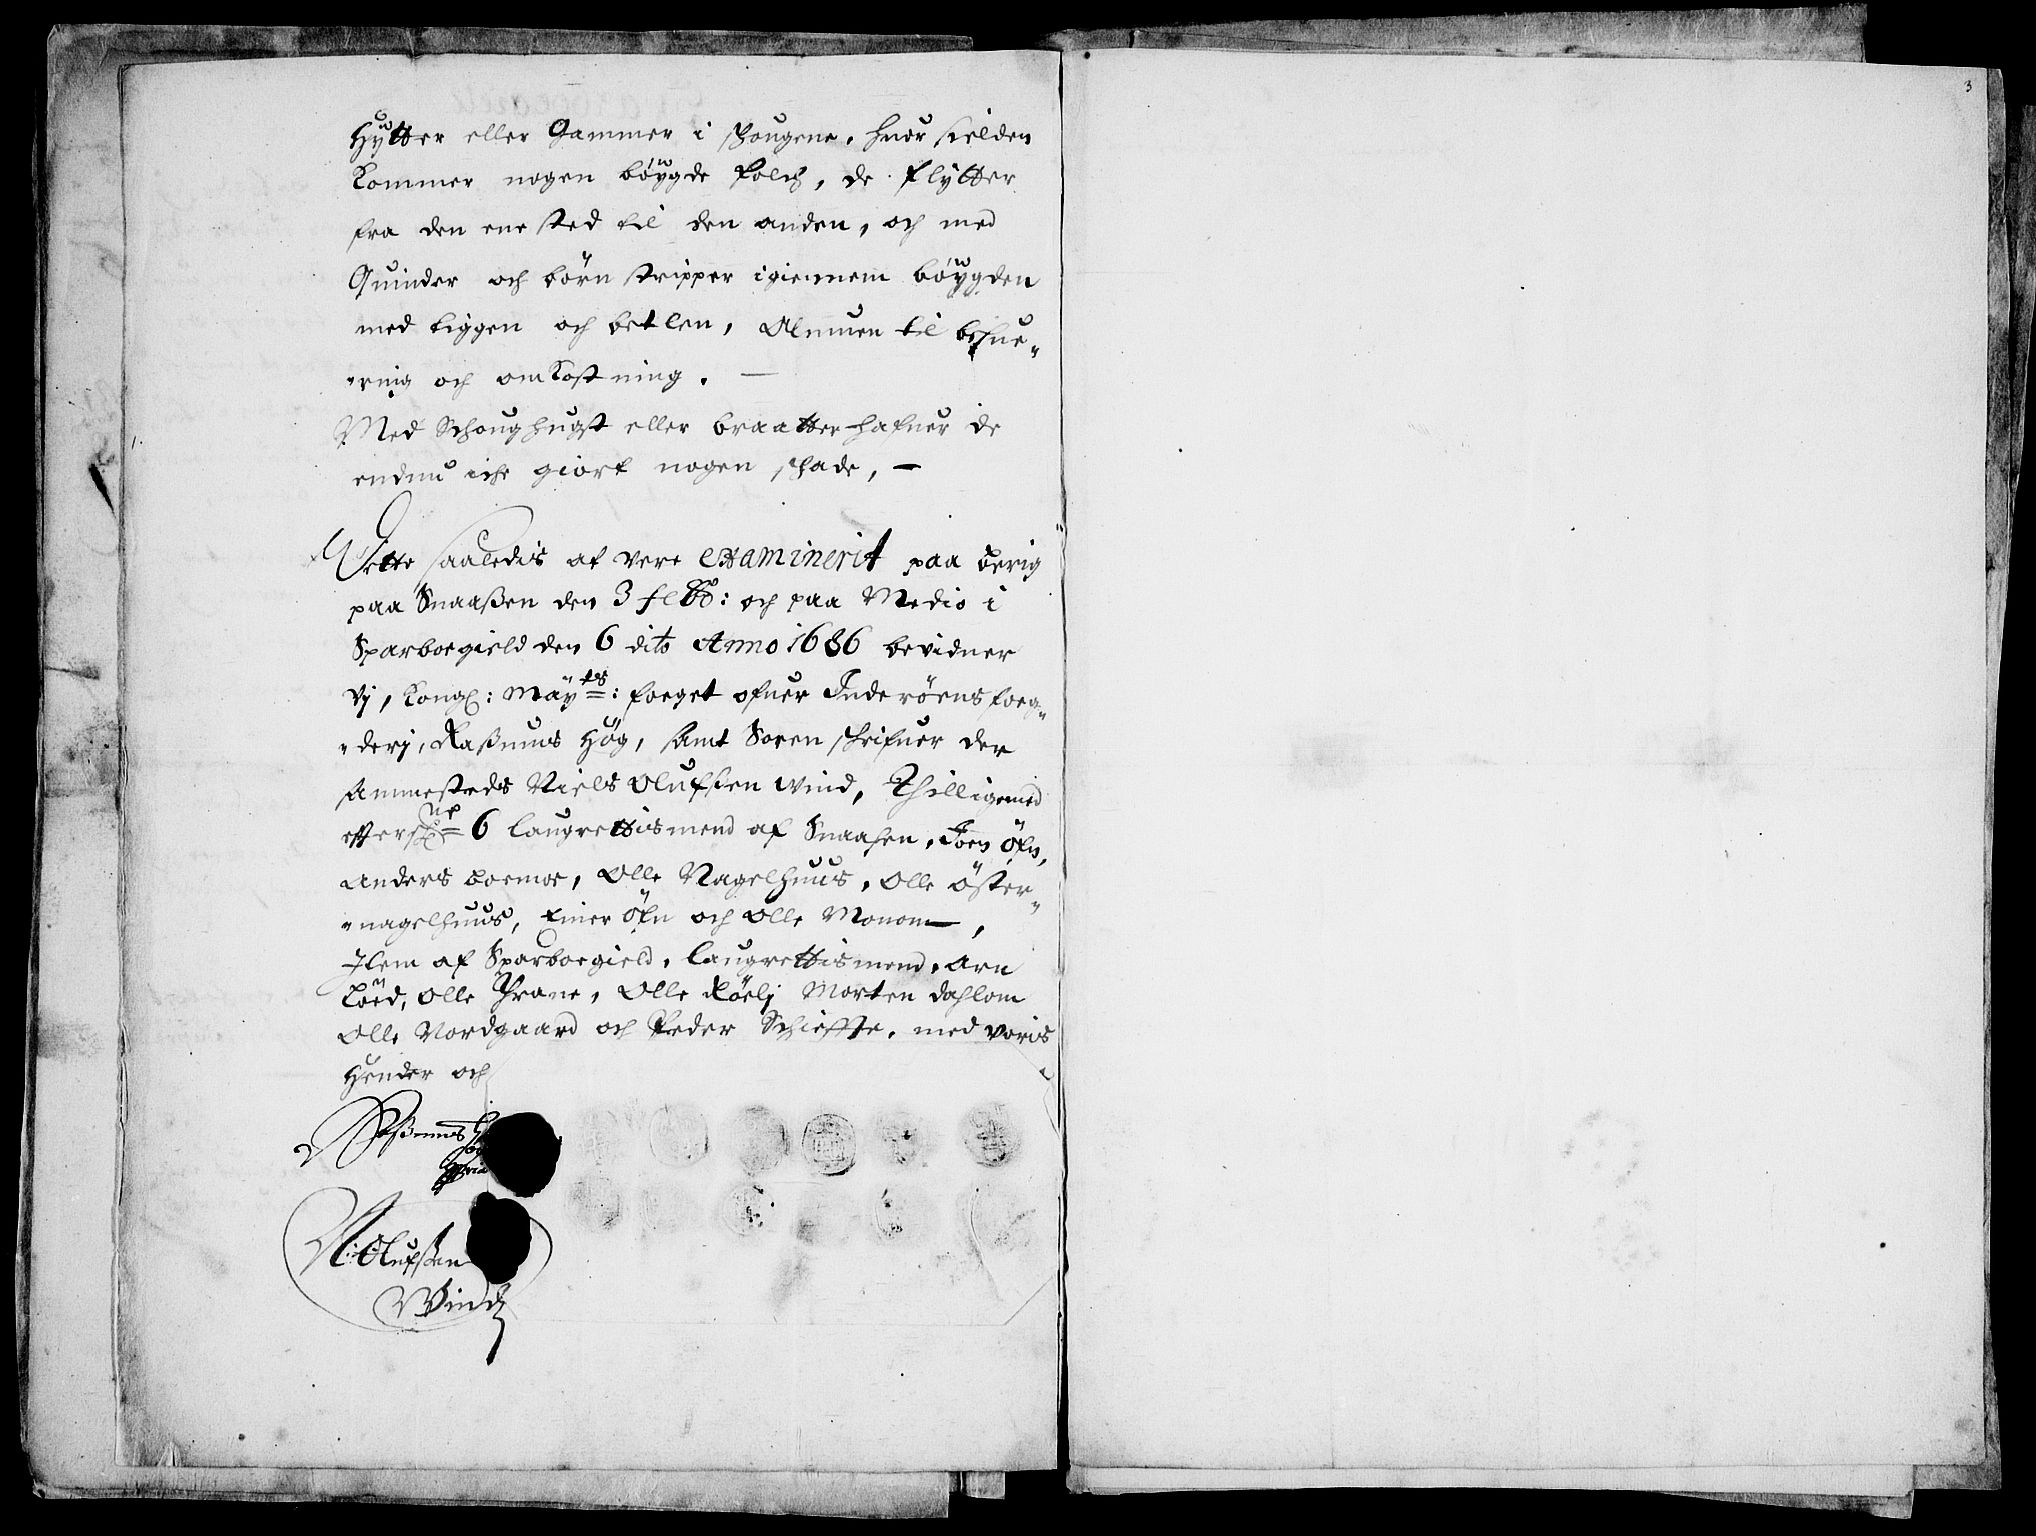 3
Hytter eller Gammer i skougene, huor sielden
kommer nogen böÿgde folch, de flÿtter
fra den ene sted til den anden, och med
Quinder och börn stripper igiennem böÿgden
med tiggen och betlen, Almuen til besue„
„ring och omkostning. —
Med Schoughugst eller braatter hafuer de
endnu iche giort nogen skade, —
Dette saaledis at vere examinerit paa berig
paa Snaaßen den 3 febr: och paa Medio i
Sparboegield den 6 dito Anno 1686 bevidner
vj, Kongl: Maÿ:ts foeget ofuer Inderöens foeg„
„derj, Raßmus Hög, samt Soren skrifuer der
sammesteds Niels Olufsen Wind, Thilligemed
efterskr:ne 6 laugrettismend af Snaasen, Joen öfn,
Anders boemoe, Olle Nagelhuus, Olle öster„
„nagelhuus, Einer öfn och Olle Monom,
Item af Sparboegield, laugrettismend, Arn
Löed, Olle Prane, Olle Röelj Morten dahlom
Olle Nordgaard och Peder Schieffte, med voris
Hender och
Raßmus
N: Olufsen
Wind